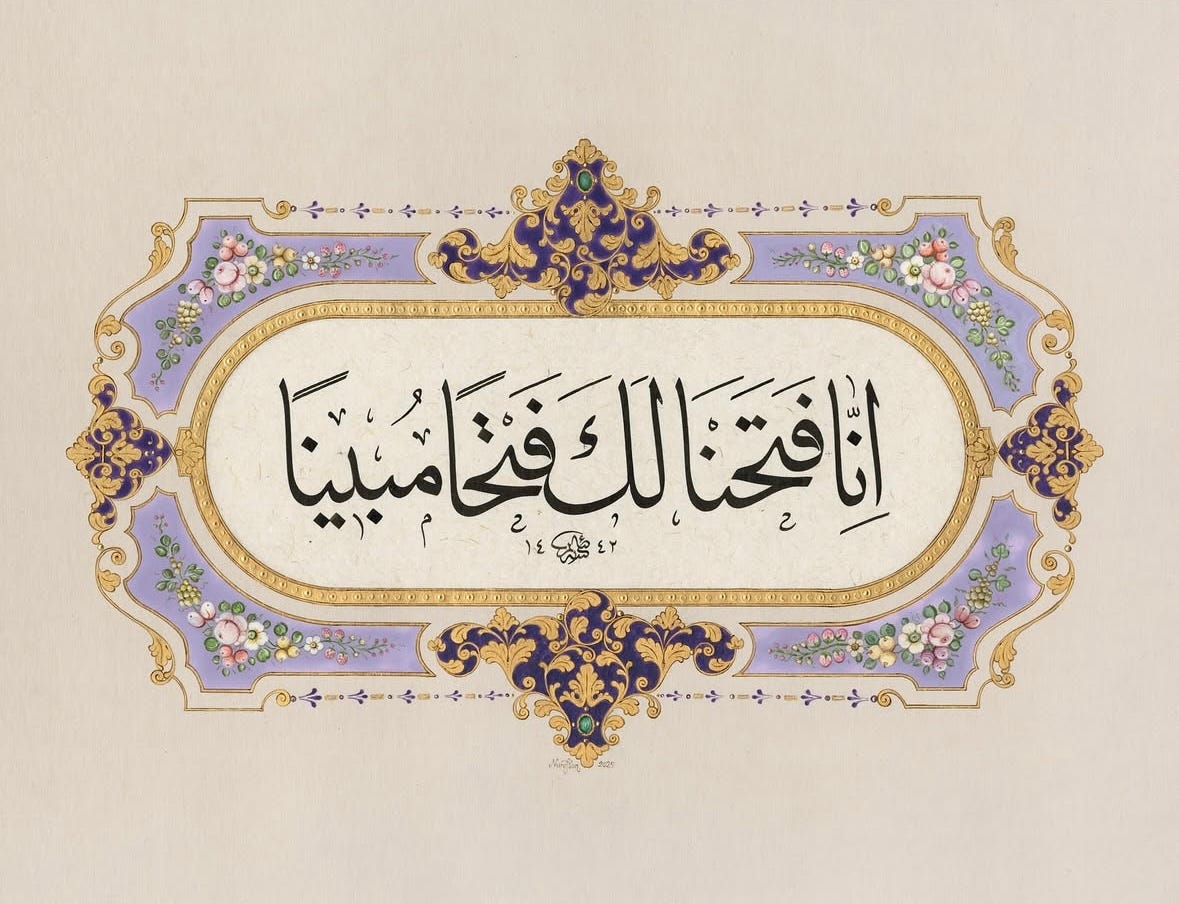 اِنَّا فَتَحْنَا لَكَ فَتْحًا مُبينًا
١٤٤٢
2025